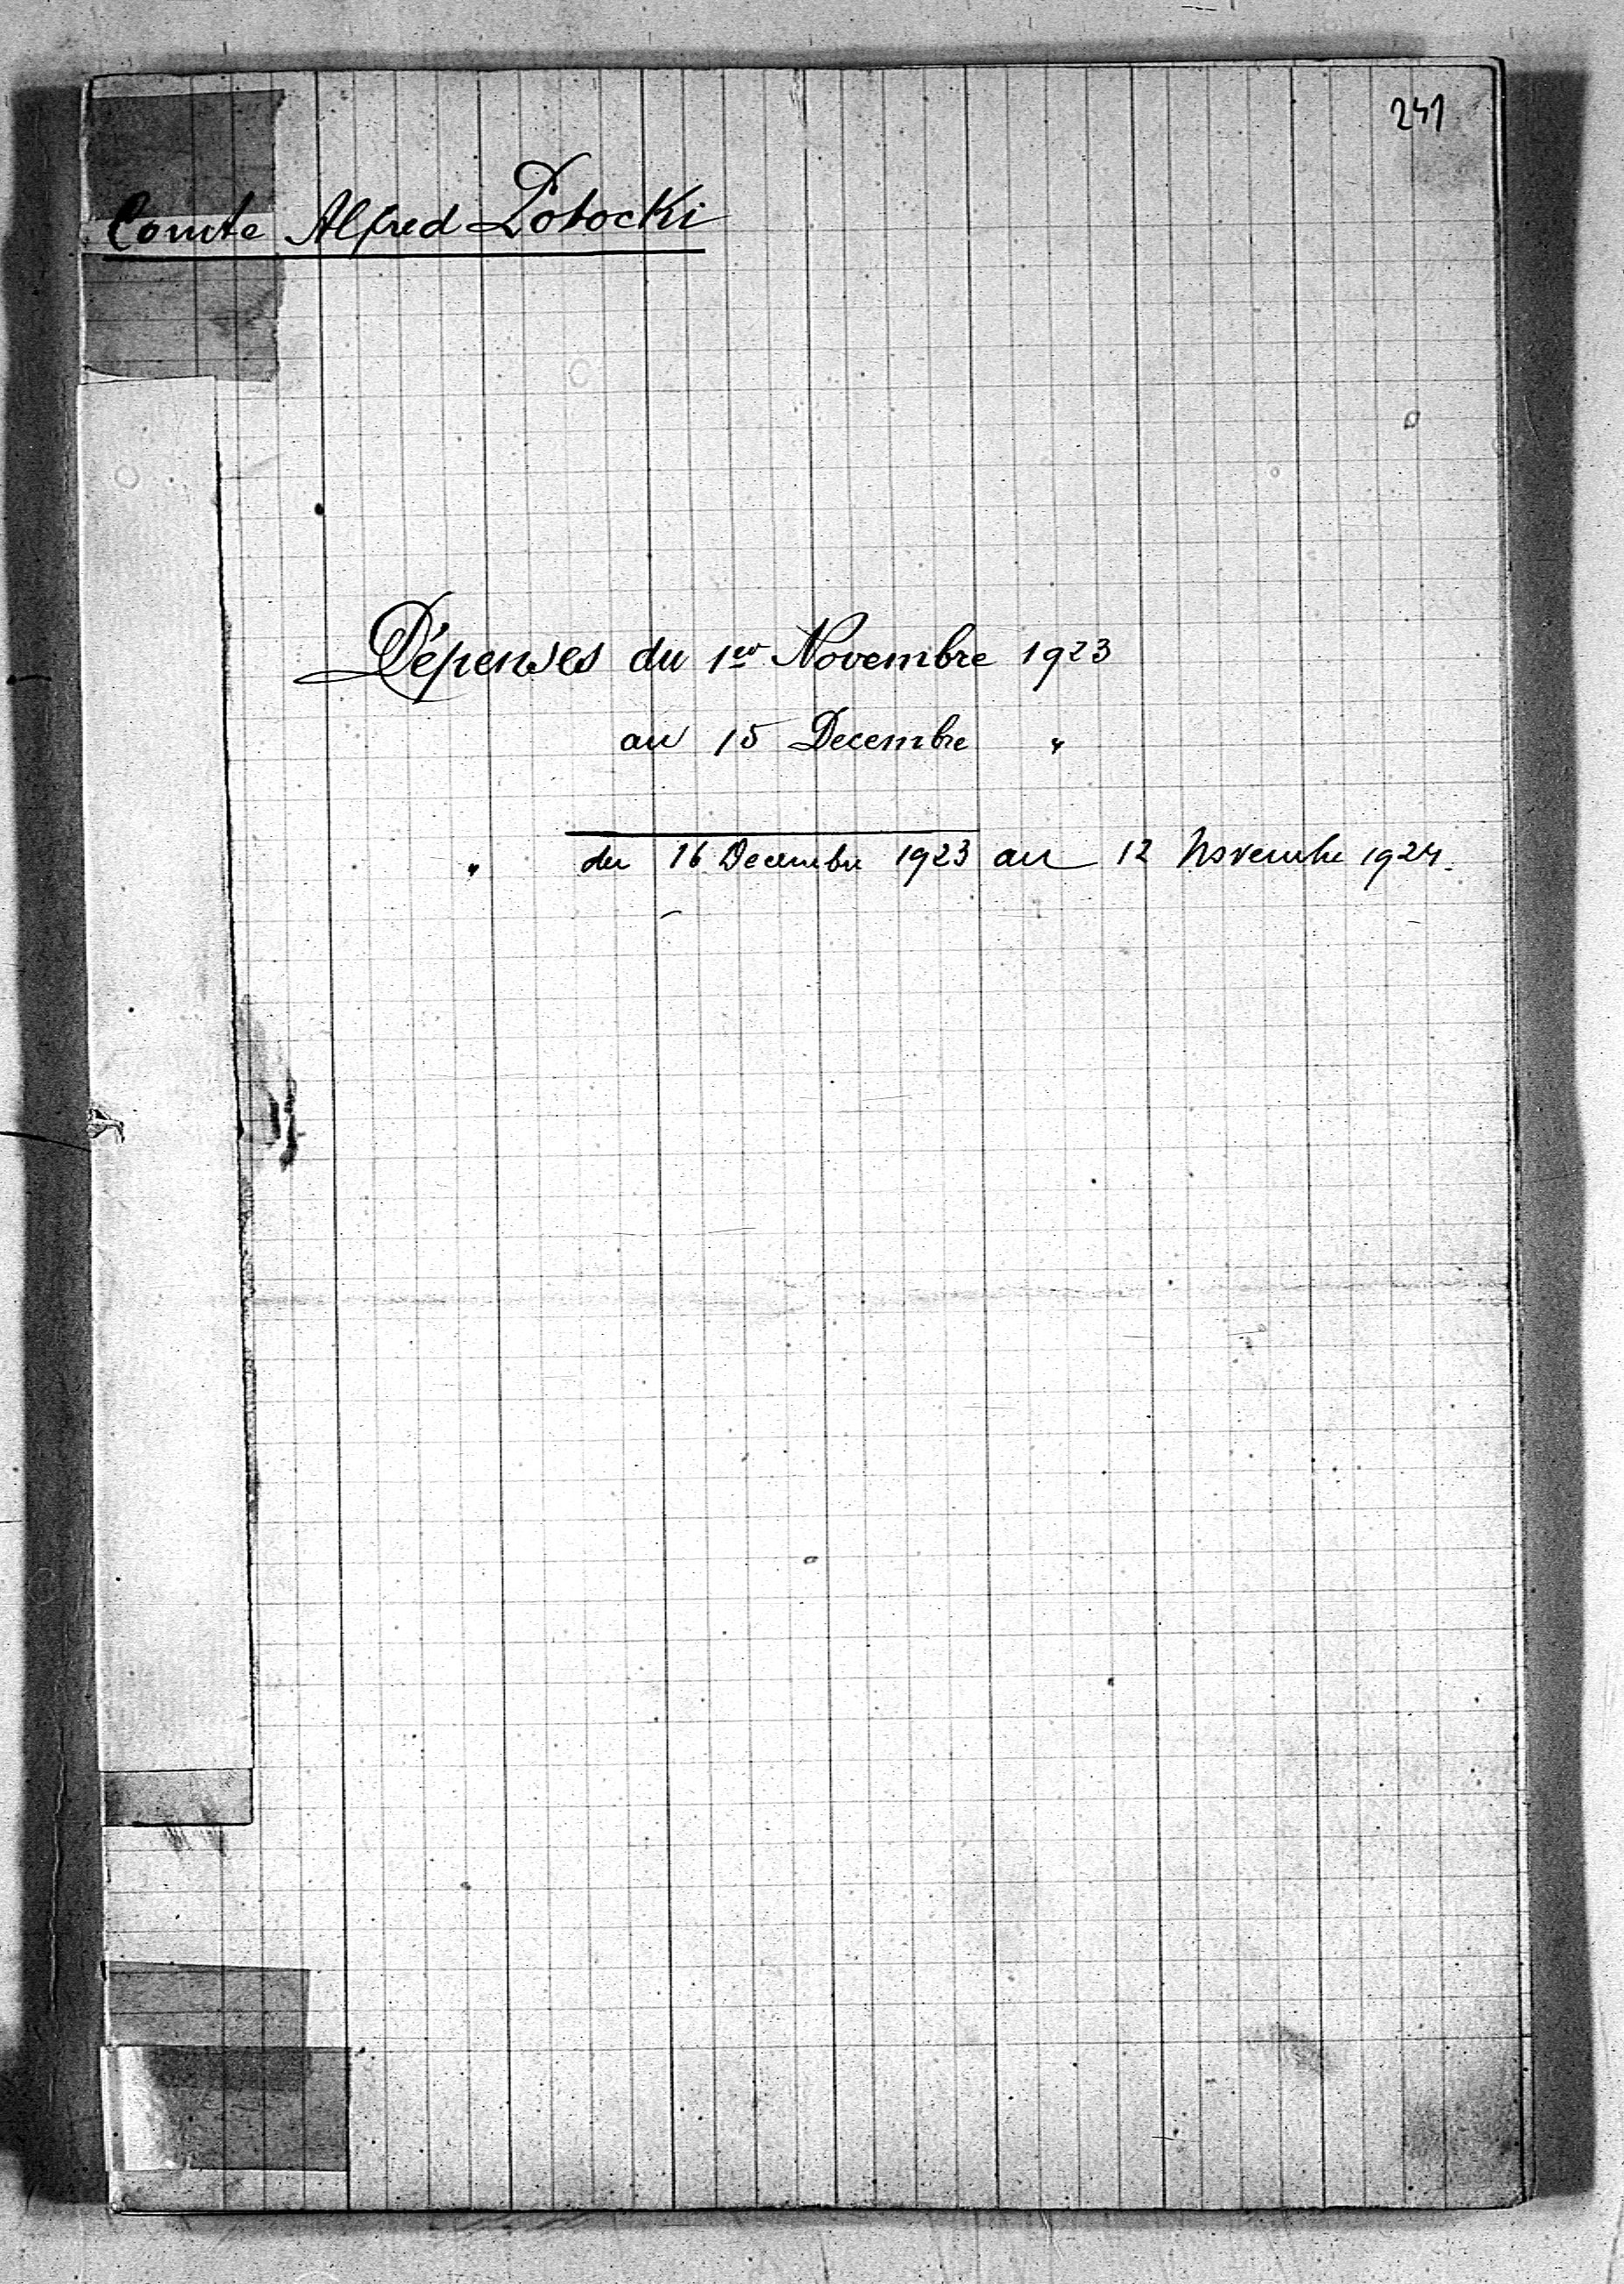 241
Comte Alfred Potocki
Dépenses du 1er Novembre 1923
au 15 Decembre "
" du 16 Decembre 1923 au 12 Novembre 1924.